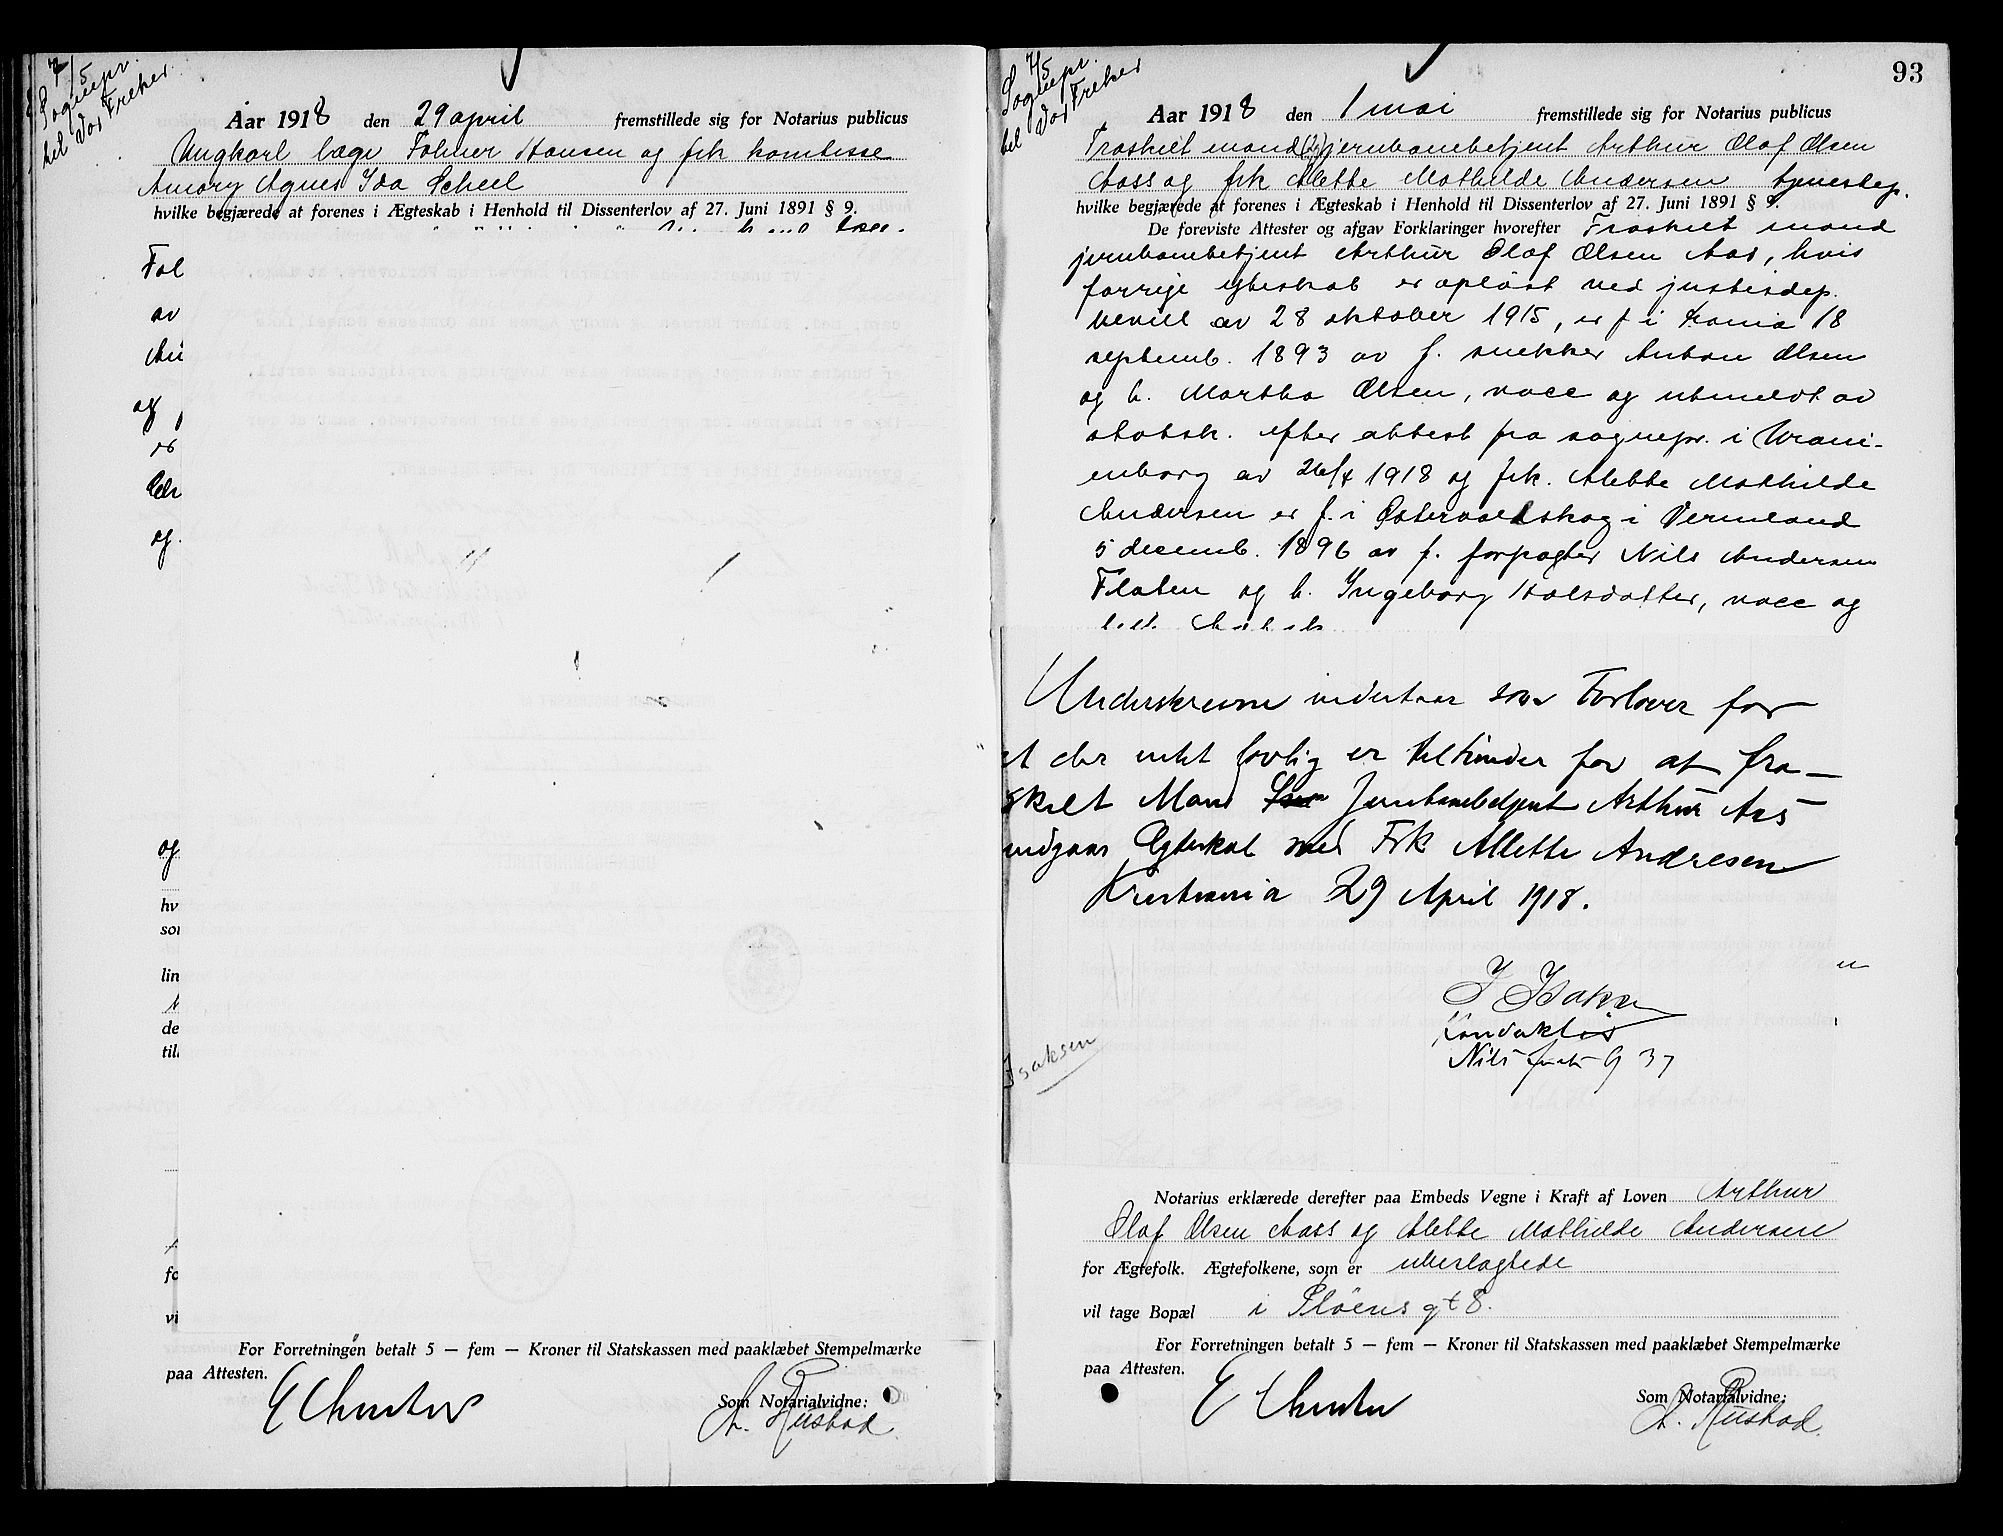 7/5
Sognepr.
til Vor Frelser
Aar 1918 den 29 april fremstillede sig for Notarius publicus
Ungkarl læge Folmer Hansen og frk komtesse
Amory Agnes Ida Scheel
hvilke begjærede at forenes i Ægteskab i Henhold til Dissenterlov af 27. Juni 1891 § 9.
Fol
av
og
og.
og
hv
lin
de
vi
For Forretningen betalt 5 — fem — Kroner til Statskassen med paaklæbet Stempelmærke
paa Attesten.
Som Notarialvidne:
A. Riistad
93
7/5
Sognepr.
til Vor Frelser
Aar 1918 den 1 mai fremstillede sig for Notarius publicus
Fraskilt mand jernbanebetjent Arthur Olaf Olsen
Aass og frk Alette Mathilde Andersen tjenestep.
hvilke begjærede at forenes i Ægteskab i Henhold til Dissenterlov af 27. Juni 1891 § 9.
De foreviste Attester og afgav Forklaringer hvorefter Fraskilt mand
jernbanebetjent Arthur Olaf Olsen Aas, hvis
forrige egteskab er opløst ved justisdep.
bevill av 28 oktober 1915, er f i Krania 18
septemb. 1893 av f. snekker Anton Olsen
og h. Martha Olsen, vacc og utmeldt av
statsk. efter attest fra sognepr. i Urani-
enborg av 26/4 1918 og frk. Alette Mathilde
Andersen er f. i Østervaldskog i Vermland
5 decemb. 1896 av f. forpagter Nils Andersen
Flaten og h. Ingeborg Halsdatter, vacc og
Underskrevne indestaar som Forlover for
at der intet lovlig er til hinder for at fra-
skilt Mand Jernbanebetjent Arthur Aas
indgaar Egteskab med Frk Allette Andresen
Kristiania 29 April 1918.
I Isaksen
Konduktør
Nils Juels G 37
Isaksen
Notarius erklærede derefter paa Embeds Vegne i Kraft af Loven Arthur
Olaf Olsen Aass og Alette Mathilde Andersen
for Ægtefolk. Ægtefolkene, som er ubeslægtede
vil tage Bopæl i Pløens gt 8.
For Forretningen betalt 5 — fem — Kroner til Statskassen med paaklæbet Stempelmærke
paa Attesten.
Som Notarialvidne:
A. Riistad